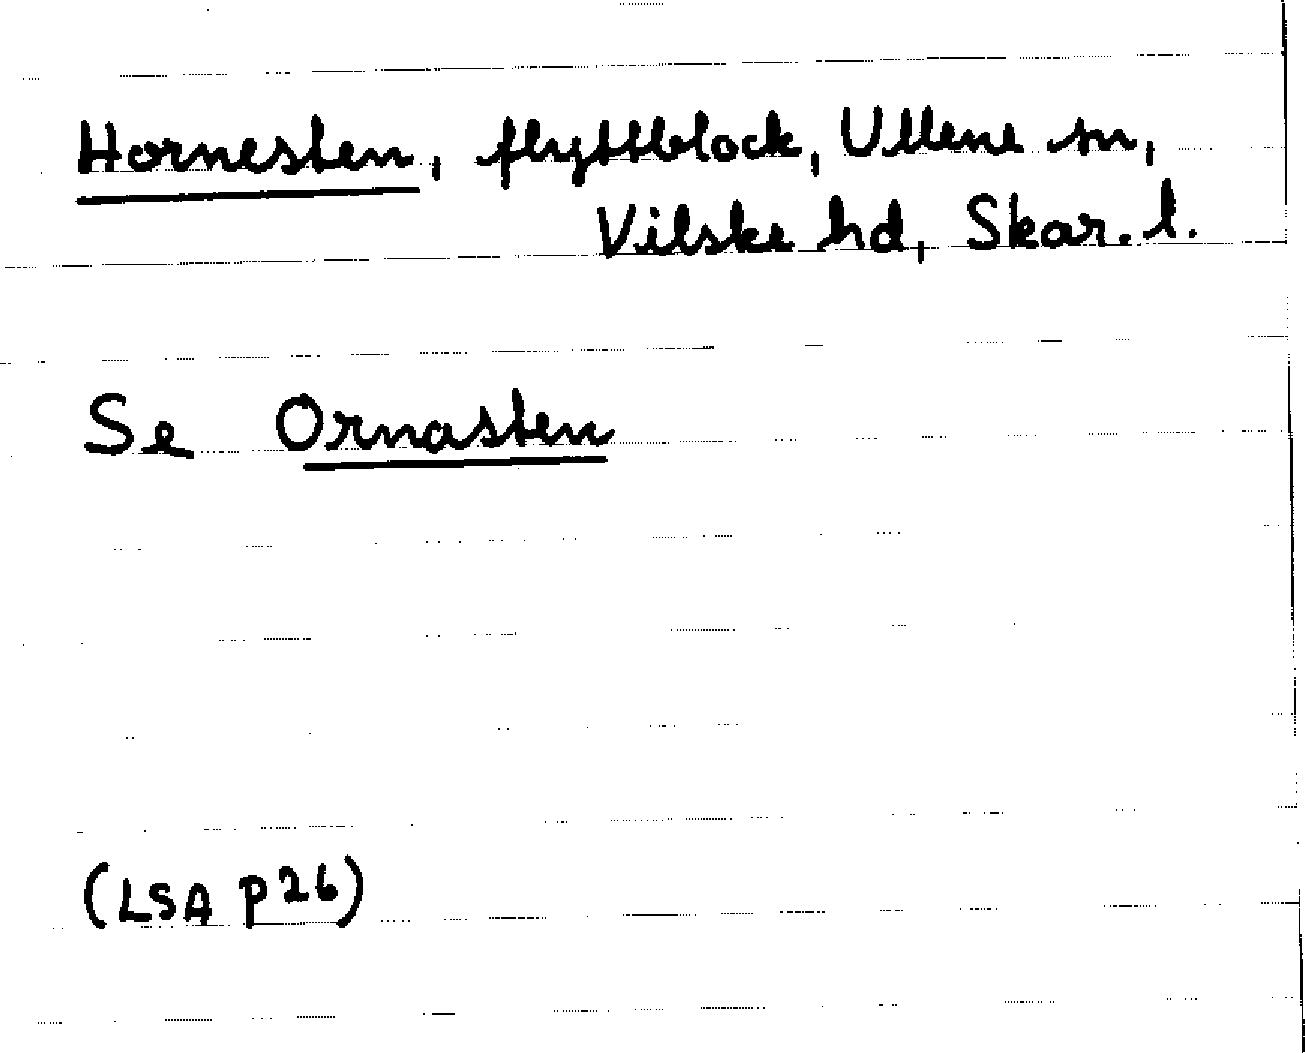 Hornesten, flyttblock, Ullene sn,
Vilske hd, Skar. l.
Se Ornasten
(LSA p 26)